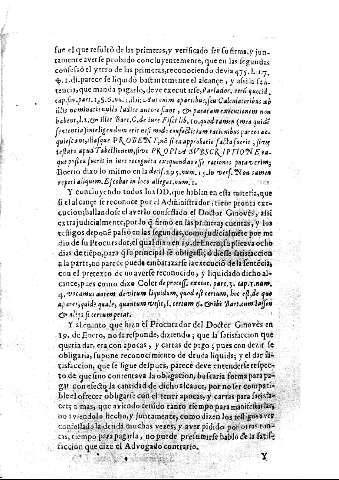 fue el que resultò de las primeras, y verificado ser su firma, y jun-
tamente averse probado concluyentemente, que en las segundas
confessò el yerro de las primeras, reconociendo devia 475. l. 17.
parece se liquidò bastantemente el alcance, y assi la sen-
tencia, que manda pagarlo, deve executarse, Parlador. rerũ quotid.
habent, l. 1. & illic Bart. C. de iure Fisci lib. 10. quod tamen
sententia sint eligendum eris nisi modo confessis tam rationibus partes ac-
quiescant, illasque PROBENT, nã si ea approbatio facta fuerit,
que possea fueris in iure recognita exequendas esse rationes
Boerio dixo lo mismo en la decis. 295. num. 15. lo vers. Non tamen
reperi aliquem. Escobar in loco allegat. num. 2.
Y concluyendo todos los DD. que hablan en esta materia, que
si el alcance se reconoce por el Administrador, tiene pronta exe-
cucion, hallandose el averlo confessado el Doctor Ginovès, assi
extrajudicialmente, por lo q̃ firmò en las primeras cuentas, y los
testigos deponẽ passò en las segundas, como judicialmẽte por me-
dio de su Procurador, el qual dia en 19. de Enero, suplicava ocho
dias de tiempo, para q̃ su principal se obligasse, ò diesse satisfaccion
a la parte, no parece pueda embaraçarse la execuciõ de la sentẽcia,
con el pretexto de no averse reconocido, y liquidado dicho al-
cance, pues como dixo Coler de process. execut. par. 3. cap. 1. num.
4. vocamus autem debitum liquidum, quod est certum, hoc est, de quo
& alios si certum petat.
Y al punto que hizo el Procurador del Doctor Ginovès en
19. de Enero, no se responde, diziendo; que la satisfaccion que
queria dar, era con apocas, y cartas de pago; pues con dezir se
obligaria, supone reconocimiento de deuda liquida; y el dar sa-
tisfaccion, que se sigue despues, parece deve entenderse respec-
to de que sino contentava la obligacion, buscaria forma para pa-
gar con efecto la cantidad de dicho alcance, por no ser compati-
ble el ofrecer obligarse con el tener apocas, y cartas para satisfa-
cer; o mas, que aviendo tenido tanto tiempo para manifestarlas,
no aviendolo hecho, y juntamente, como dizen los testigos aver
confessado la deuda muchas vezes, y aver pidido por otras tan-
tas, tiempo para pagarla, no puede presumirse hablò de la satis-
faccion que dize el Advogado contrario.
Y